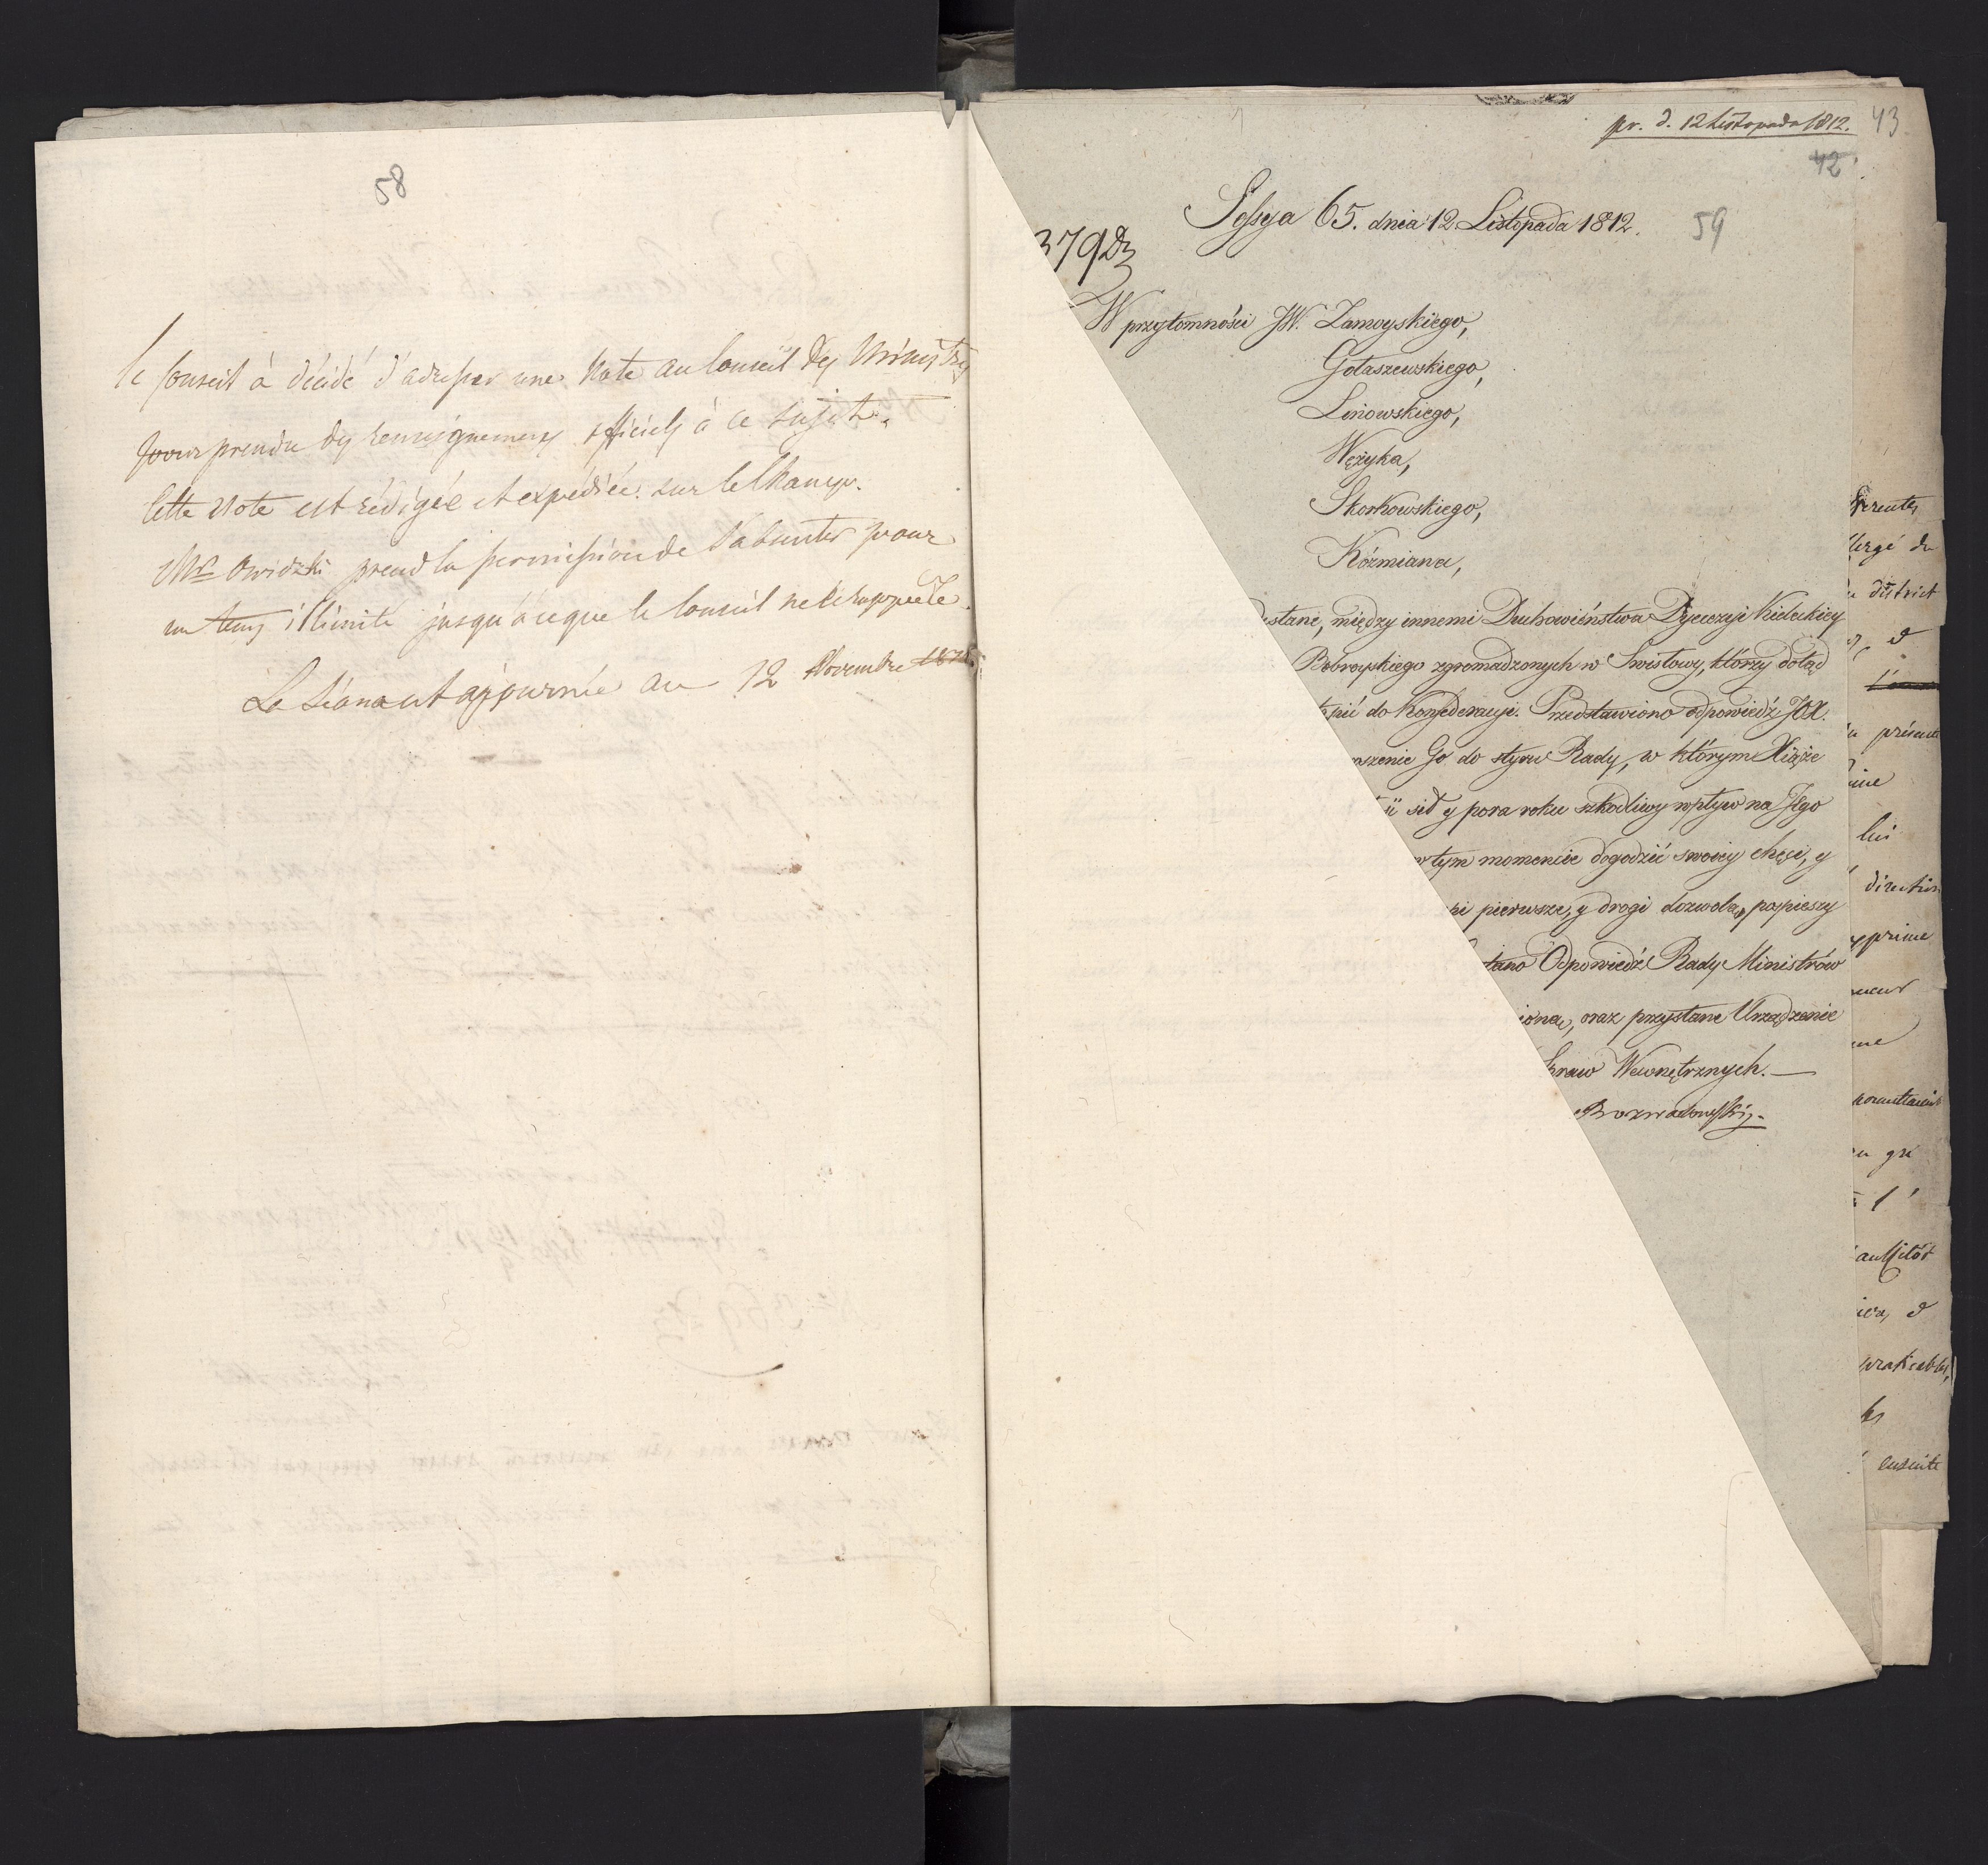 58
le Conseil à décidé d'adresser une Note au Conseil des Ministres
pour prendre des renseignemens officiels à ce sujet.
Cette Note est rédigée et expédiée sur le Champ.
Mr Owidzki prend la permission de s'absenter pour
un tems illimité jusqu'à ce que le Conseil ne le rappelle.
La Séance est ajournée au 12 Novembre 1812.
pr. d. 12 Listopada 1812. 43
42
Sessya 65. dnia 12 Listopada 1812. 59
379
W przytomności JW. Zamoyskiego,
Gołaszewskiego,
Linowskiego,
Wężyka,
Skorkowskiego,
Koźmiana,
słane, między innemi Duchowieństwa Dyecezyi Kieleckiey
Bobroyskiego zgromadzonych w Swisłowy, którzy dotąd
pić do Konfederacyi. Przedstawiono odpowiedź JOX.
szenie Go do steru Rady, w którym Xiąże
ii sił y pora roku szkodliwy wpływ na Jego
w tym momencie dogodzić swoiey chęci, y
pi pierwsze, y drogi dozwolą, pospieszy
tano Odpowiedź Rady Ministrów
iona, oraz przysłane Urządzenie
Spraw Wewnętrznych. —
Rozwadowski
ferentes
lergé du
district
d
présence
lui
direction
xprime
aussitôt
d
praticables,
ensuite